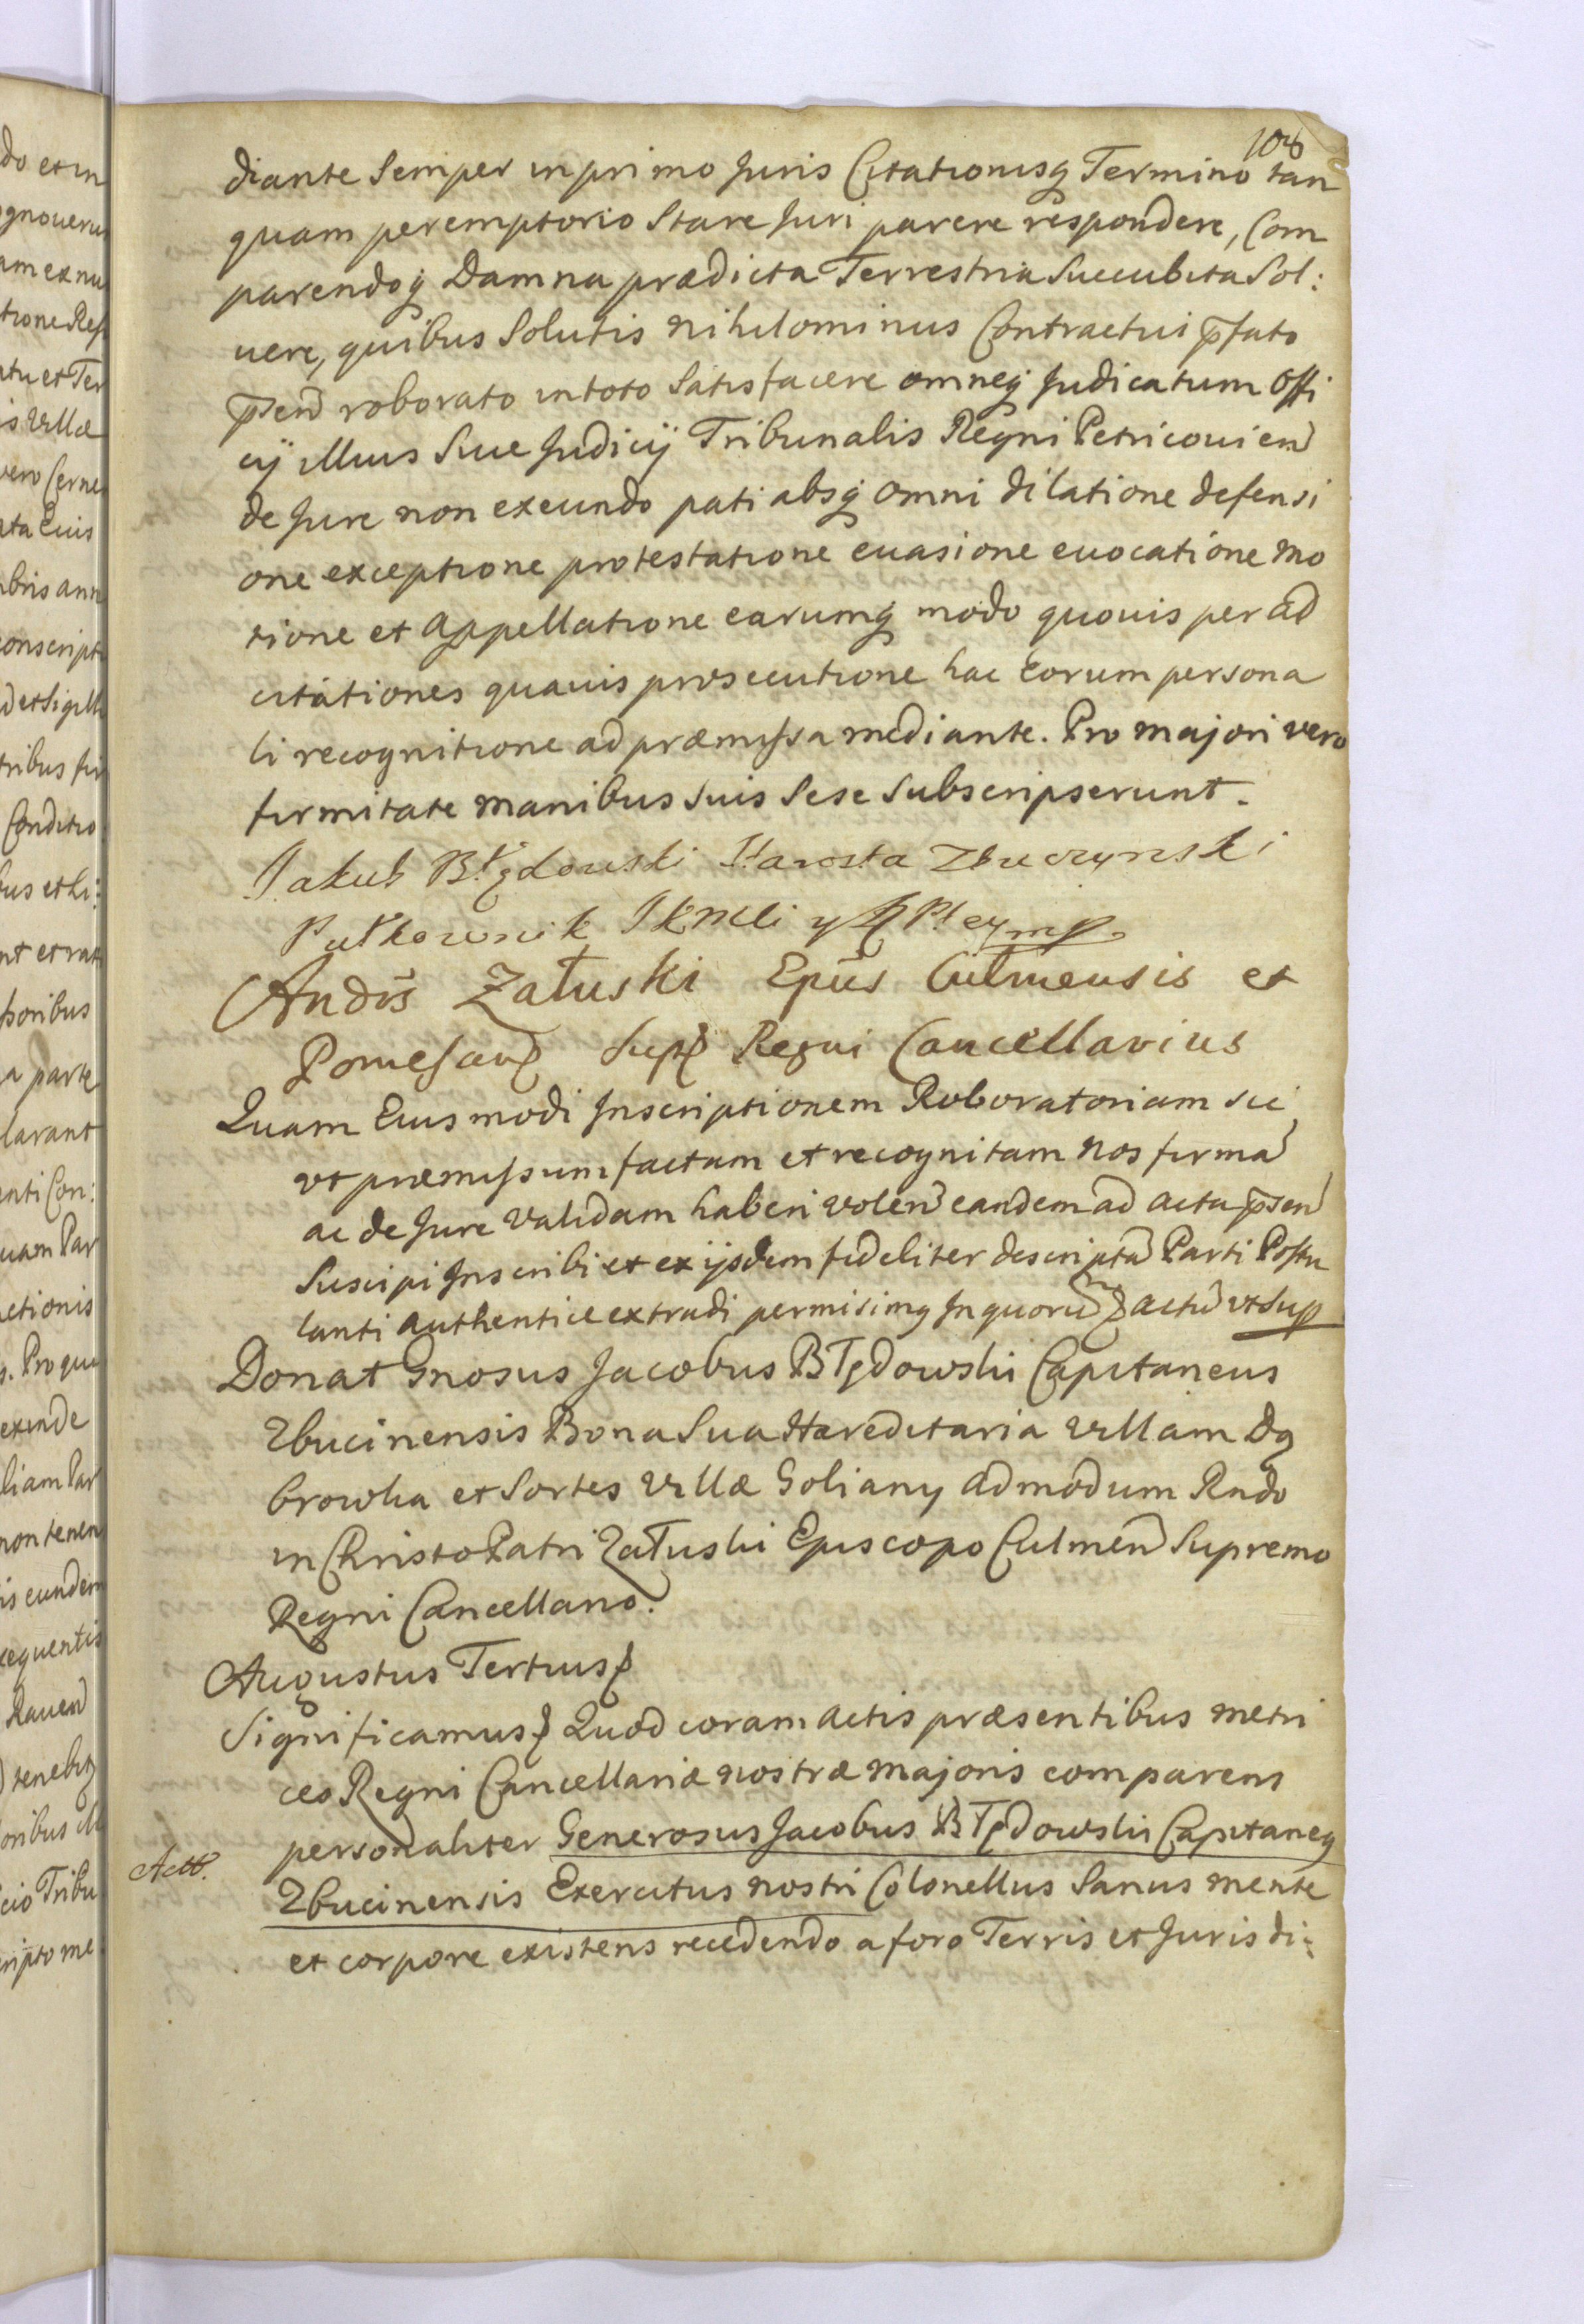 108
diante Semper in primo Juris Citationisq Termino tan
quam peremptorio Stare Juri parere respondere, Com
parendoq Damna prædicta Terrestria Succubita Sol:
uere, quibus Solutis nihilominus Contractui p̄fato
p̄send roborato in toto Satisfacere omneq Judicatum Offi
cij illius Siue Judicij Tribunalis Regni Petricouien
de Jure non exeundo pati absq omni dilatione defensi
one exceptione protestatione euasione euocatione mo
tione et appellatione earumq modo quouis per ad
citationes quauis prosecutione hac Eorum persona
li recognitione ad præmissa mediante. Pro majori vero
firmitate manibus suis Sese Subscripserunt.
Jakub Błędowski Starosta Zbuczynski
Pułkownik JKMci y
Andrs Załuski Epūs Culmensis et
Pomesan Supr Regni Cancellarius
Quam Eiusmodi Inscriptionem Roboratoriam sic
vt præmissum factam et recognitam nos firma
ac de Jure Validam haberi volen eandem ad acta p̄sen
Suscipi Inscribi et ex ijsdem fideliter descripta Parti Postu
lanti authentice extradi permisimq In quoru actu vt Sup
Donat Gnosus Jacobus Błędowski Capitaneus
Zbucinensis Bona Sua Hæreditaria Villam Dą
browka et Sortes Villæ Goliany admodum Rndo
in Christo Patri Załuski Episcopo Culmen Supremo
Regni Cancellario.
Augustus Tertius
Significamus Quod coram actis præsentibus metri
ces Regni Cancellariæ nostræ majoris comparens
personaliter Generosus Jacobus Błędowski Capitaneq
Actt.
Zbucinensis Exercitus nostri Colonellus Sanus mente
et corpore existens recedendo a foro Terris et Jurisdi: